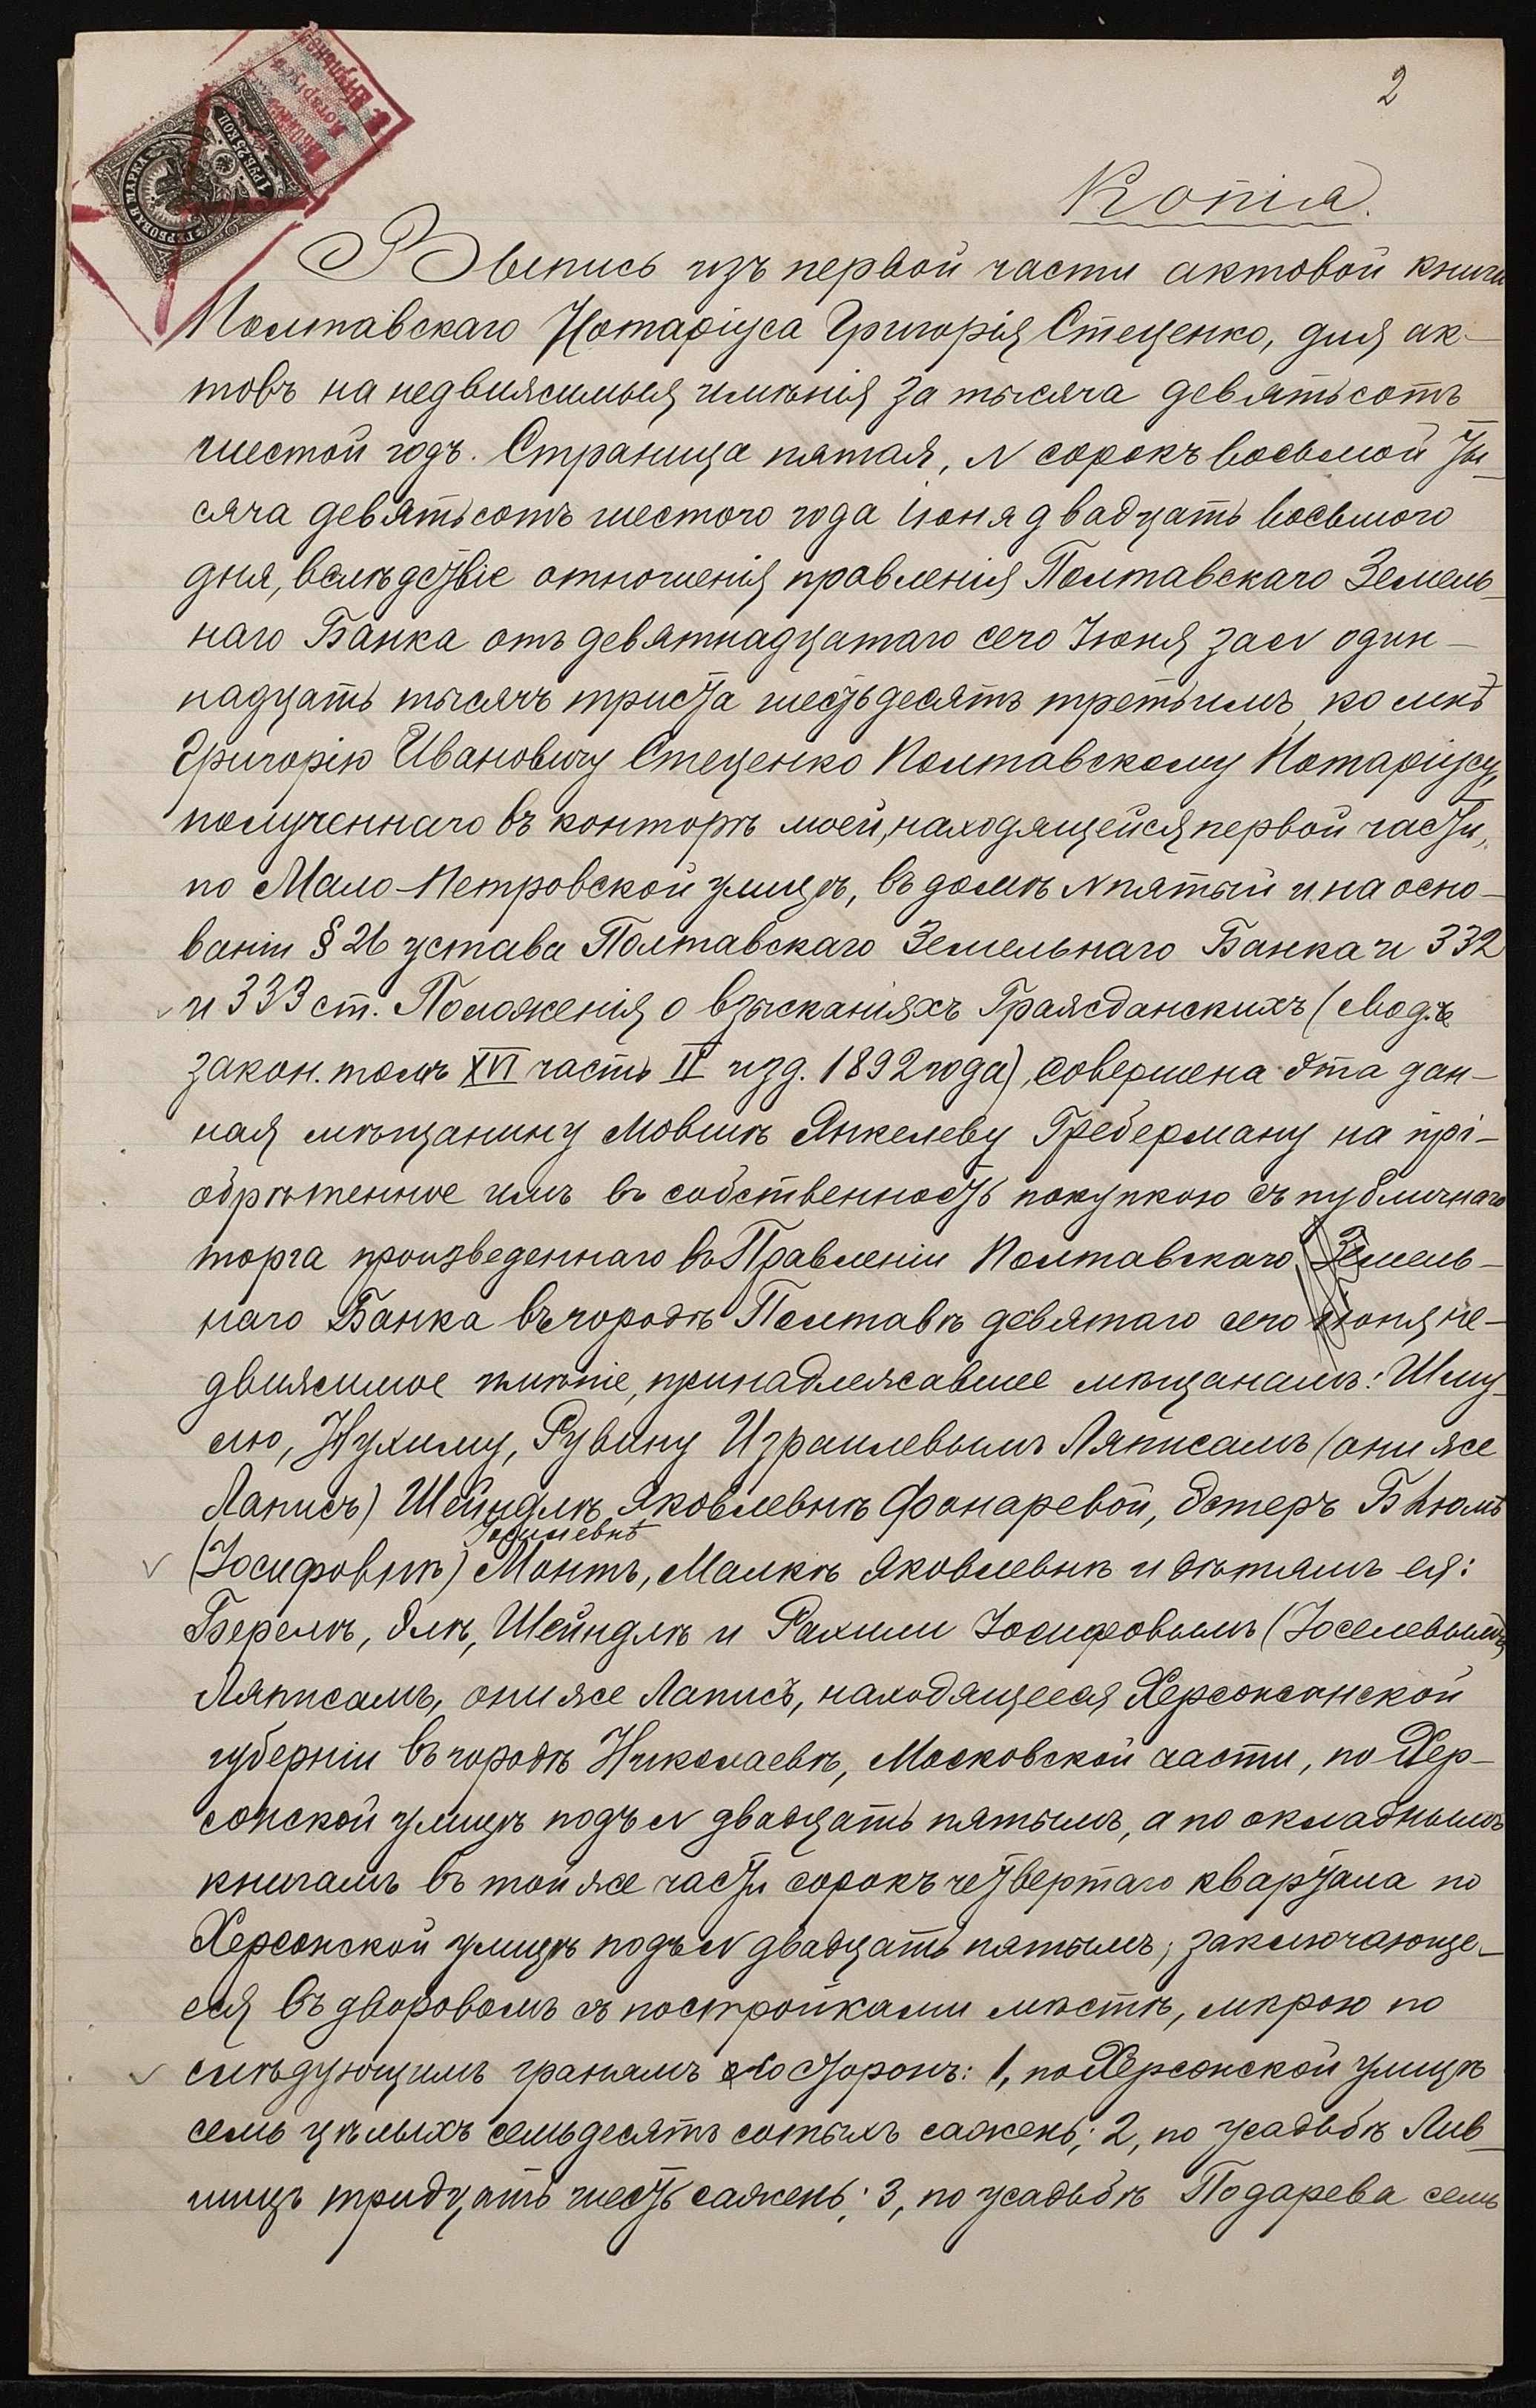 2
Копія.
Выпись изъ первой части актовой книги
Полтавскаго Нотаріуса Григорія Стеценко, для ак-
товъ на недвижимыя имѣнія за тысяча девятьсотъ
шестой годъ. Страница пятая, N сорокъ восьмой Ты-
сяча девятьсотъ шестого года іюня двадцать восьмого
дня, вслѣдствіе отношенія правленія Полтавскаго Земель-
наго Банка отъ девятнадцатаго сего Іюня за N один-
надцать тысячъ триста шестьдесятъ третьимъ, ко мнѣ
Григорію Ивановичу Стеценко Полтавскому Нотаріусу,
полученнаго въ конторѣ моей, находящейся первой части,
по Мало-Петровской улицѣ, въ домѣ N пятый и на осно-
ваніи § 26 устава Полтавскаго Земельнаго Банка и 332
и 333 ст. Положенія о взысканіяхъ Гражданскихъ (свод.
закон. томъ XVI часть II изд. 1892 года), совершена эта дан-
ная мѣщанину Мовшѣ Янкелеву Греберману на прі-
обрѣтенное имъ въ собственность покупкою съ публичнаго
торга произведеннаго въ Правленіи Полтавскаго Земель-
наго Банка въ городѣ Полтавѣ девятаго сего іюня не-
движимое имѣніе, принадлежавшее мѣщанамъ: Шму-
лю, Нухиму, Рувину Израилевымъ Ляписамъ (они же
Ляписъ) Шейндлѣ Яковлевнѣ Фонаревой, Эстеръ Б
(Іосифовнѣ) Монтъ, Малкѣ Яковлевнѣ и дѣтямъ ея:
Берелѣ, Элѣ, Шейндлѣ и Рахили Іосифовымъ (Іоселевымъ)
Ляписамъ, они же Лаписъ, находящееся Херсонской
губерніи въ городѣ Николаевѣ, Московской части, по Хер-
сонской улицѣ подъ N двадцать пятымъ, а по окладнымъ
книгамъ въ той же части сорокъ четвертаго квартала по
Херсонской улицѣ подъ N двадцать пятымъ, заключающе-
еся въ дворовомъ съ постройками мѣстѣ, мѣрою по
слѣдующимъ гранямъ сторонъ: 1, по Херсонской улицѣ
семь цѣлыхъ семьдесятъ сотыхъ сажень; 2, по усадьбѣ Лив-
шицъ тридцать шесть сажень; 3, по усадьбѣ Подарева семь